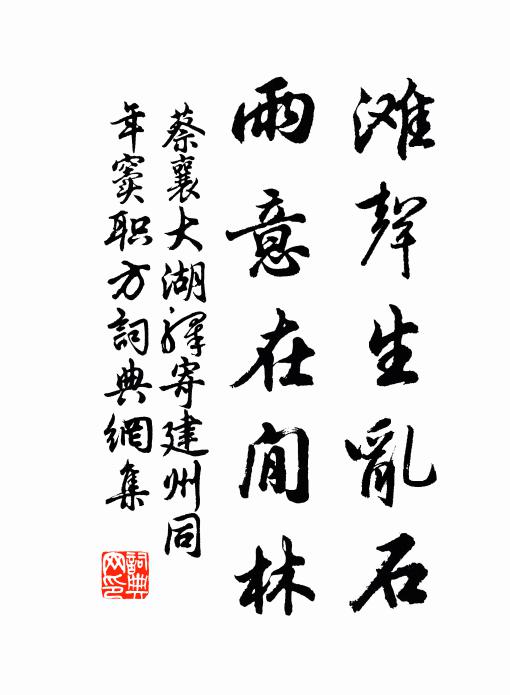 滩聲生亂石
雨意在閒林
蔡襄大湖驛寄建州同
年窦职方詞典網集
詞典网印